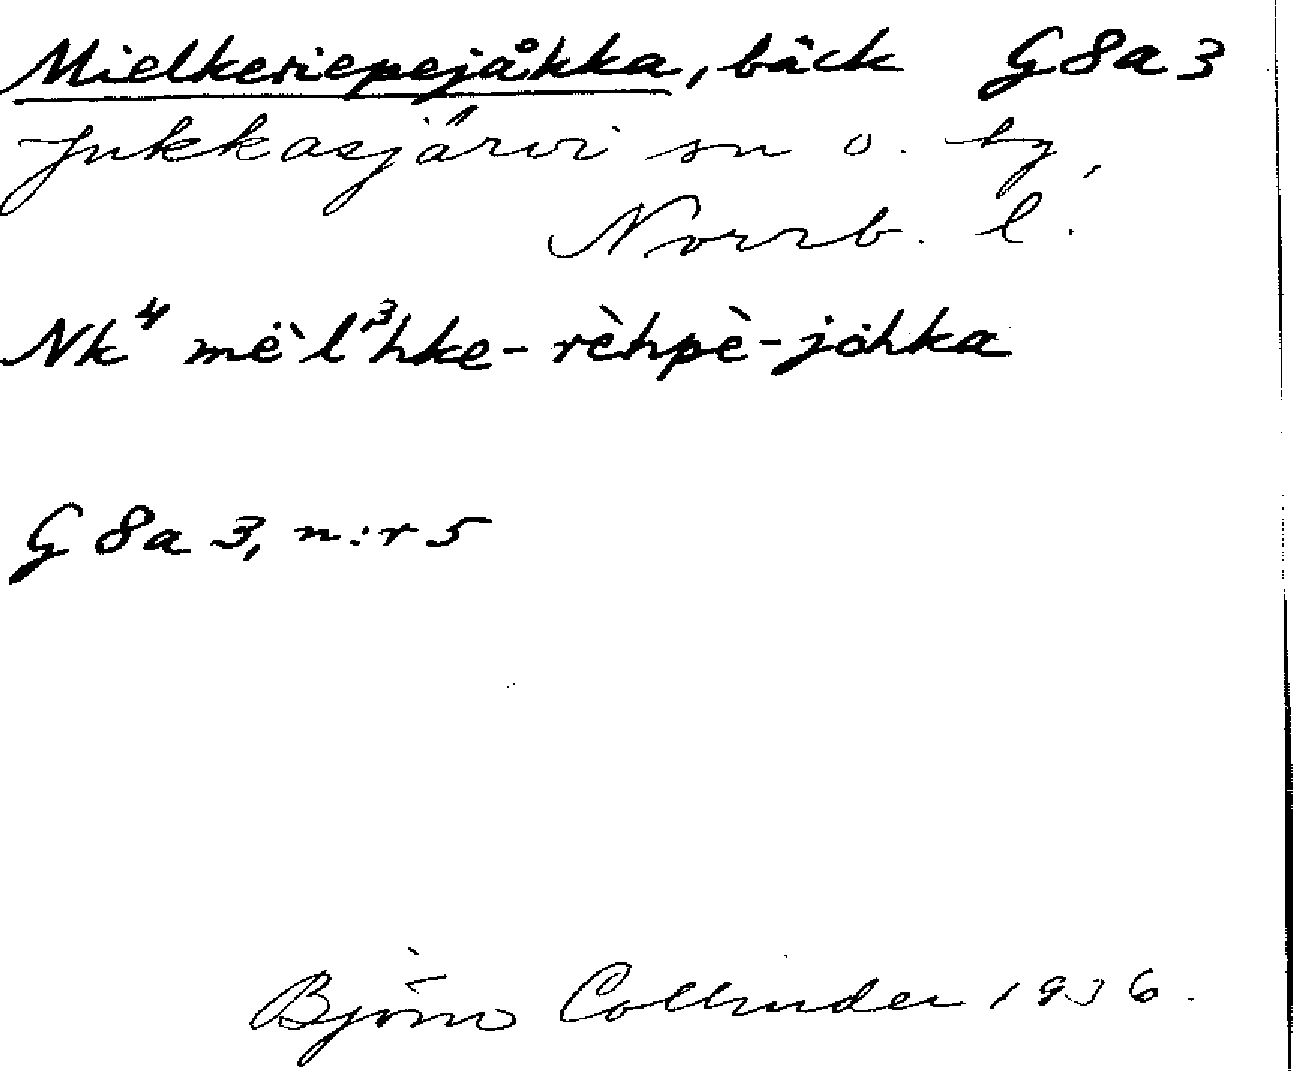 Mielkeriepejåkka, bäck G8a3
Jukkasjärvi sn o. tg,
Norrb. l.
Nk⁴ më̀l³hke-rèhpè-jåhka
G8a3, n:r 5
Björn Collinder 1936.